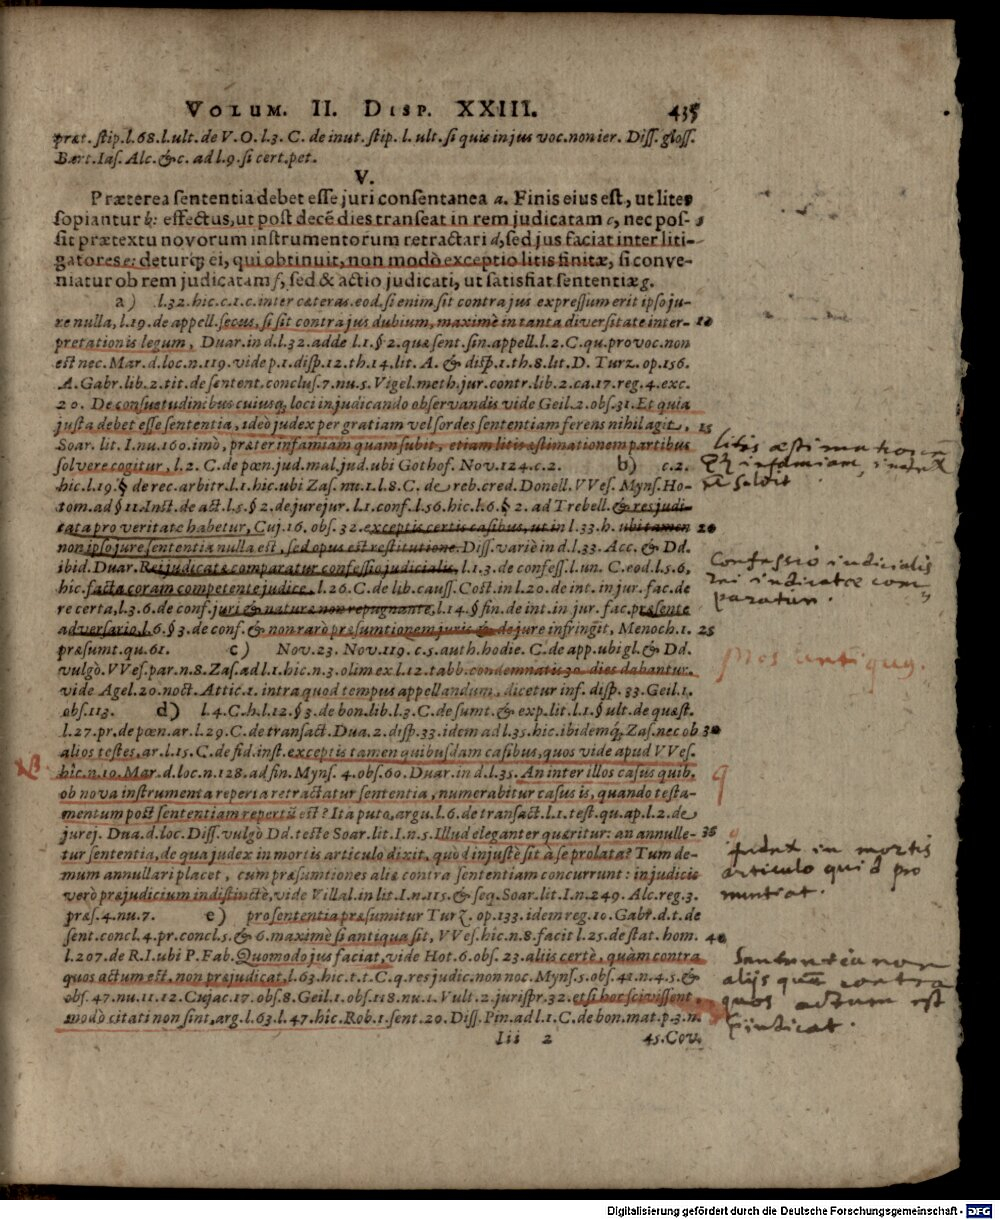 VOLUM. II. DISP. XXIII. 435
præt. stip. l. 68. l. ult. de V. O. l. 3. C. de inut. stip. l. ult. si quis in jus voc. non ier. Diss. gloss.
Bart. Ias. Alc. &c. ad l. 9. si cert. pet.
V.
Præterea sententia debet esse juri consentanea a. Finis eius est, ut lites
sopiantur b: effectus, ut post decẽ dies transeat in rem judicatam c, nec pos-
sit prætextu novorum instrumentorum retractari d, sed jus faciat inter liti-
gatores e: deturq; ei, qui obtinuit, non modò exceptio litis finitæ, si conve-
niatur ob rem judicatam f, sed & actio judicati, ut satisfiat sententiæ g.
a) l. 32. hic. c. 1. c. inter cæteras. eod. si enim sit contra jus expressum erit ipso ju-
re nulla, l. 19. de appell. secus, si sit contra jus dubium, maximè in tanta diversitate inter- 10
pretationis legum, Duar. in d. l. 32. adde l. 1. § 2. quæ sent. sin. appell. l. 2. C. qu. provoc. non
est nec. Mar. d. loc. n. 119. vide p. 1. disp. 12. th. 14. lit. A. & disp. 1. th. 8. lit. D. Turz. op. 156.
A. Gabr. lib. 2. tit. de sentent. conclus. 7. nu. 5. Vigel. meth. jur. contr. lib. 2. ca. 17. reg. 4. exc.
20. De consuetudinibus cuiusq; loci in judicando observandis vide Geil. 2. obs. 31. Et quia
justa debet esse sententia, ideò judex per gratiam vel sordes sententiam ferens nihil agit, 15
Soar. lit. I. nu. 160. imò, præter infamiam quam subit, etiam litis æstimationem partibus
solvere cogitur, l. 2. C. de pœn. jud. mal. jud. ubi Gothof. Nov. 124. c. 2. b) c. 2.
hic. l. 19. § de rec. arbitr. l. 1. hic. ubi Zas. nu. 1. l. 8. C. de reb. cred. Donell. VVes. Myns. Ho-
tom. ad § 11. Inst. de act. l. 5. § 2. de jurejur. l. 1. conf. l. 56. hic. l. 6. § 2. ad Trebell. & res judi-
cata pro veritate habetur, Cuj. 16. obs. 32. exceptis certis casibus, ut in l. 33. h. ubi tamen 20
non ipso jure sententia nulla est, sed opus est restitutione. Diss. variè in d. l. 33. Acc. & Dd.
ibid. Duar. Rei judicatæ comparatur confessio judicialis, l. 1. 3. de confess. l. un. C. eod. l. 5. 6,
hic. facta coram competente judice, l. 26. C. de lib. causs. Cost. in l. 20. de int. in jur. fac. de
re certa, l. 3. 6. de conf. juri & naturæ non repugnante, l. 14. § fin. de int. in jur. fac. præsente
adversario, l. 6. § 3. de conf. & non rarò præsumtionem juris & de jure infringit, Menoch. 1. 25
præsumt. qu. 61. c) Nov. 23. Nov. 119. c. 5. auth. hodie. C. de app. ubi gl. & Dd.
vulgò. VVes. par. n. 8. Zas. ad l. 1. hic. n. 3. olim ex l. 12. tabb. condemnatis 30. dies dabantur.
vide Agel. 20. noct. Attic. 1. intra quod tempus appellandum, dicetur inf. disp. 33. Geil. 1.
obs. 113. d) l. 4. C. h. l. 12. § 3. de bon. lib. l. 3. C. de sumt. & exp. lit. l. 1. § ult. de quæst.
l. 27. pr. de pœn. ar. l. 29. C. de transact. Dua. 2. disp. 33. idem ad l. 35. hic. ibidemq; Zas. nec ob 30
alios testes, ar. l. 15. C. de fid. inst. exceptis tamen quibusdam casibus, quos vide apud VVes.
hîc. n. 10. Mar. d. loc. n. 128. ad fin. Myns. 4. obs. 60. Duar. in d. l. 35. An inter illos casus quib.
ob nova instrumenta reperta retractatur sententia, numerabitur casus is, quando testa-
mentum post sententiam repertũ est? Ita puto, argu. l. 6. de transact. l. 1. test. qu. ap. l. 2. de
jurej. Dua. d. loc. Diss. vulgò Dd. teste Soar. lit. I. n. 5. Illud eleganter quæritur: an annulle- 35
tur sententia, de qua judex in mortis articulo dixit, quòd injustè sit à se prolata? Tum de-
mum annullari placet, cum præsumtiones aliæ contra sententiam concurrunt: in judiciis
verò præjudicium indistinctè, vide Villal. in lit. I. n. 115. & seq. Soar. lit. I. n. 249. Alc. reg. 3.
præs. 4. nu. 7. e) pro sententia præsumitur Turz. op. 133. idem reg. 10. Gabr. d. t. de
sent. concl. 4. pr. concl. 5. & 6. maximè si antiqua sit, VVes. hic. n. 8. facit l. 25. de stat. hom. 40
l. 207. de R. I. ubi P. Fab. Quomodo jus faciat, vide Hot. 6. obs. 23. aliis certè, quàm contra
quos actum est, non præjudicat, l. 63. hic. t. t. C. q. res judic. non noc. Myns. 5. obs. 41. n. 4. 5. &
obs. 47. nu. 11. 12. Cujac. 17. obs. 8. Geil. 1. obs. 118. nu. 1. Vult. 2. jurispr. 32. etsi hoc scivissent,
modò citati non sint, arg. l. 63. l. 47. hic. Rob. 1. sent. 20. Diss. Pin. ad l. 1. C. de bon. mat. p. 3. n.
Iii 2 45. Cov.
litis æstimation
infamiam, iudex
Confessio iudicialis
rei iudicatæ com
paratur.
Mos antiquus.
NB
Judex in mortis
articulo quid pro
nuntiat.
Sententia non
alijs quam contra
quos actum est
Digitalisierung gefördert durch die Deutsche Forschungsgemeinschaft - DFG